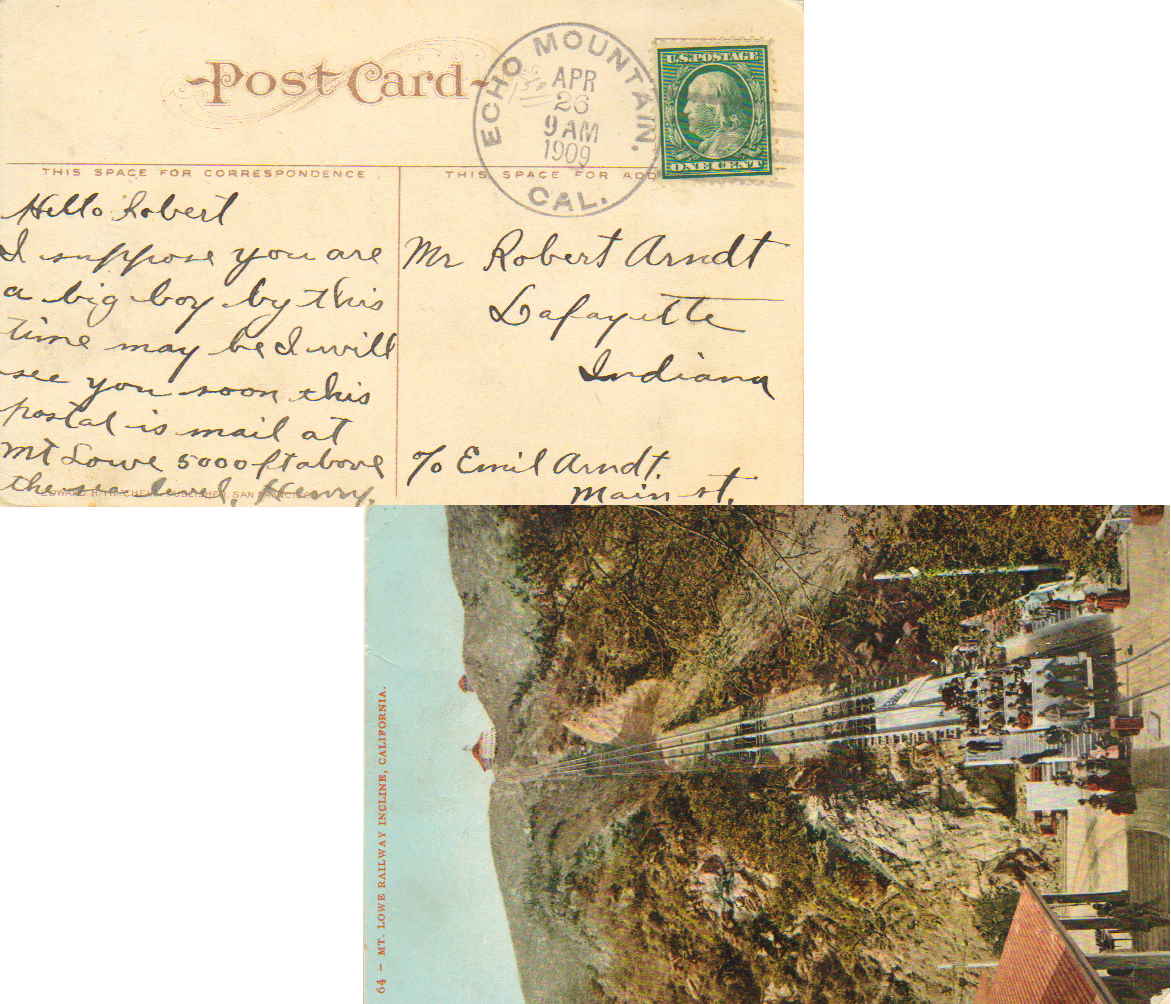 Post Card
ECHO MOUNTAIN.
APR
26
9 AM
1909
CAL.
U.S. POSTAGE
ONE CENT
THIS SPACE FOR CORRESPONDENCE
THIS SPACE FOR ADD
Hello Robert
I suppose you are
a big boy by this
time may be I will
see you soon this
postal is mail at
Mt Lowe 5000 ft above
the sea level, Henry.
Mr Robert Arndt
Lafayette
Indiana
c/o Emil Arndt.
Main st.
EDWARD H. MITCHELL, PUBLISHER, SAN FRANCISCO
64 – MT. LOWE RAILWAY INCLINE, CALIFORNIA.